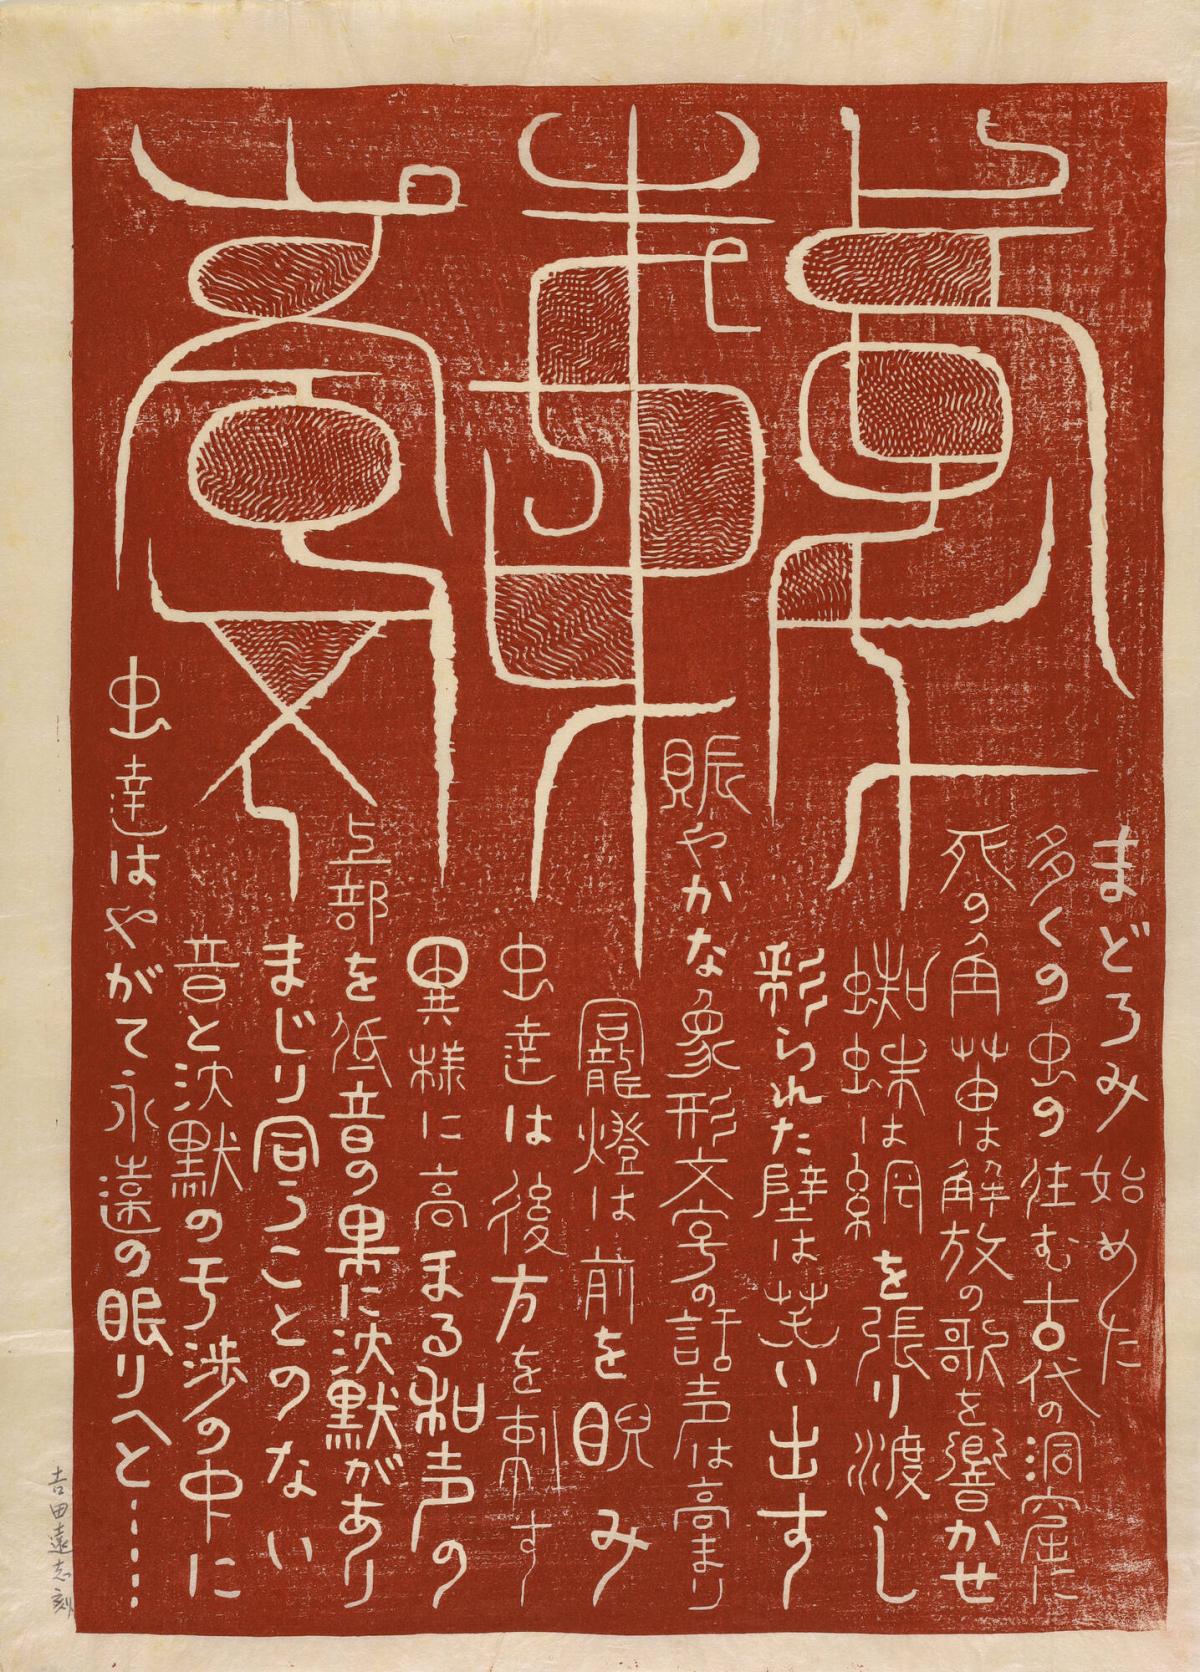 まどろみ始めた
多くの虫の住む古代の洞窟に
死の角笛は解放の歌を響かせ
蜘蛛は網を張り渡し
彩られた壁は笑い出す
賑やかな象形文字の話声は高まり
龕燈は前を睨み
虫達は後方を刺す
異様に高まる和声の
上部を低音の果に沈黙があり
まじり合うことのない
音と沈黙の干渉の中に
虫達はやがて永遠の眠りへと……
吉田遠志刻